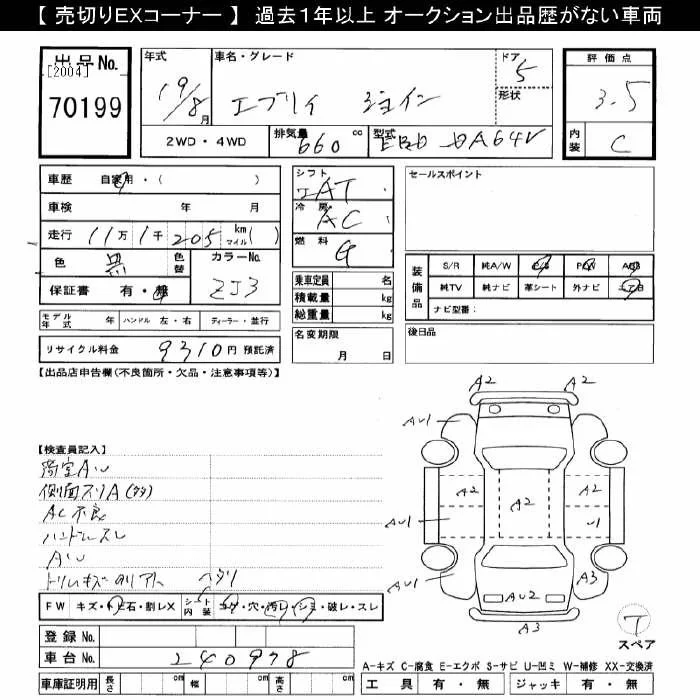 【 売切りEXコーナー 】 過去1年以上 オークション出品歴がない車両
出品No.
[2004]
70199
年式 19/8 月
車名・グレード エブリィ ジョイン
ドア 5
形状
評価点 3.5
内装 C
2WD・4WD
排気量 660 cc
型式 EBD DA64V
車歴 自家用・( )
車検 年 月
走行 11万1千205 km マイル ( )
色 黒 色替
カラーNo. ZJ3
保証書 有・無
シフト IAT
冷房 AC
燃料 G
乗車定員 名
積載量 kg
総重量 kg
名変期限 月 日
セールスポイント
装備品
S/R 純A/W P/S P/W A/B
純TV 純ナビ 革シート 外ナビ エアB
ナビ型番:
後日品
モデル年式 年 ハンドル 左・右 ディーラー・並行
リサイクル料金 9310 円 預託済
【出品店申告欄(不良箇所・欠品・注意事項等)】
【検査員記入】
荷室AU
側面スリA(タタ)
AC不良
ハンドルスレ
AU
トリムキズ クリアハ
ヘタリ
FW キズ・飛石・割レX
シート内装 コゲ・穴・汚レ・シミ・破レ・スレ
登録No.
車台No. 240978
車庫証明用 長さ cm 幅 cm 高さ cm
A2 A2
AU1
A2 A2 A2
AU1 U1
AU1 A3
AU2
A3
T
スペア
A-キズ C-腐食 E-エクボ S-サビ U-凹ミ W-補修 XX-交換済
工具 有・無 ジャッキ 有・無